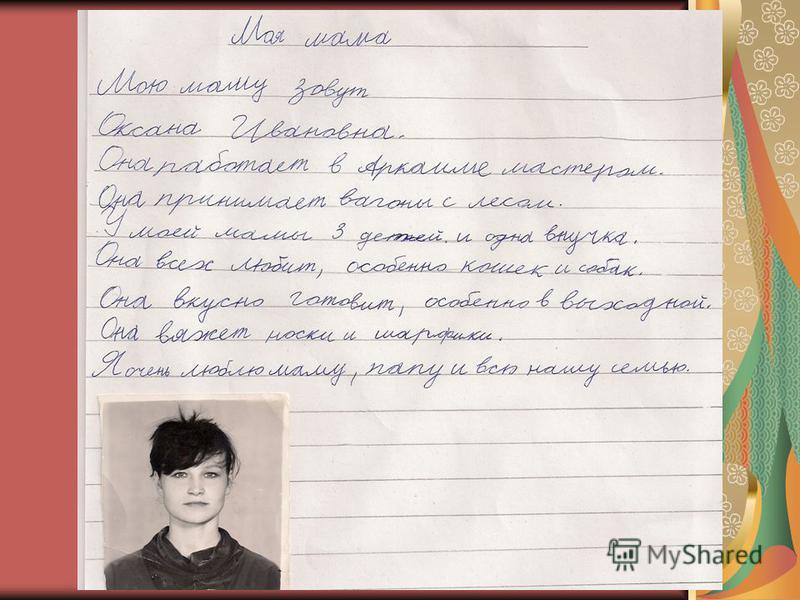 Моя мама
Мою маму зовут
Оксана Ивановна.
Она работает в Аркаиме мастером.
Она принимает вагоны с лесом.
У моей мамы 3 детей и одна внучка.
Она всех любит, особенно кошек и собак.
Она вкусно готовит, особенно в выходной.
Она вяжет носки и шарфики.
Я очень люблю маму, папу и всю нашу семью.
MyShared